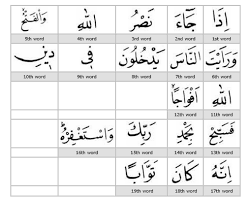 اِذَا جَآءَ نَصْرُ اللّٰهِ وَالْفَتْحُ
1st word 2nd word 3rd word 4th word 5th word
وَرَاَيْتَ النَّاسَ يَدْخُلُوْنَ فِىْ دِيْنِ
6th word 7th word 8th word 9th word 10th word
اللّٰهِ اَفْوَاجًا
11th word 12th word
فَسَبِّحْ بِحَمْدِ رَبِّكَ وَاسْتَغْفِرْهُؕ
13th word 14th word 15th word 16th word
اِنَّهٗ كَانَ تَوَّابًا
17th word 18th word 19th word